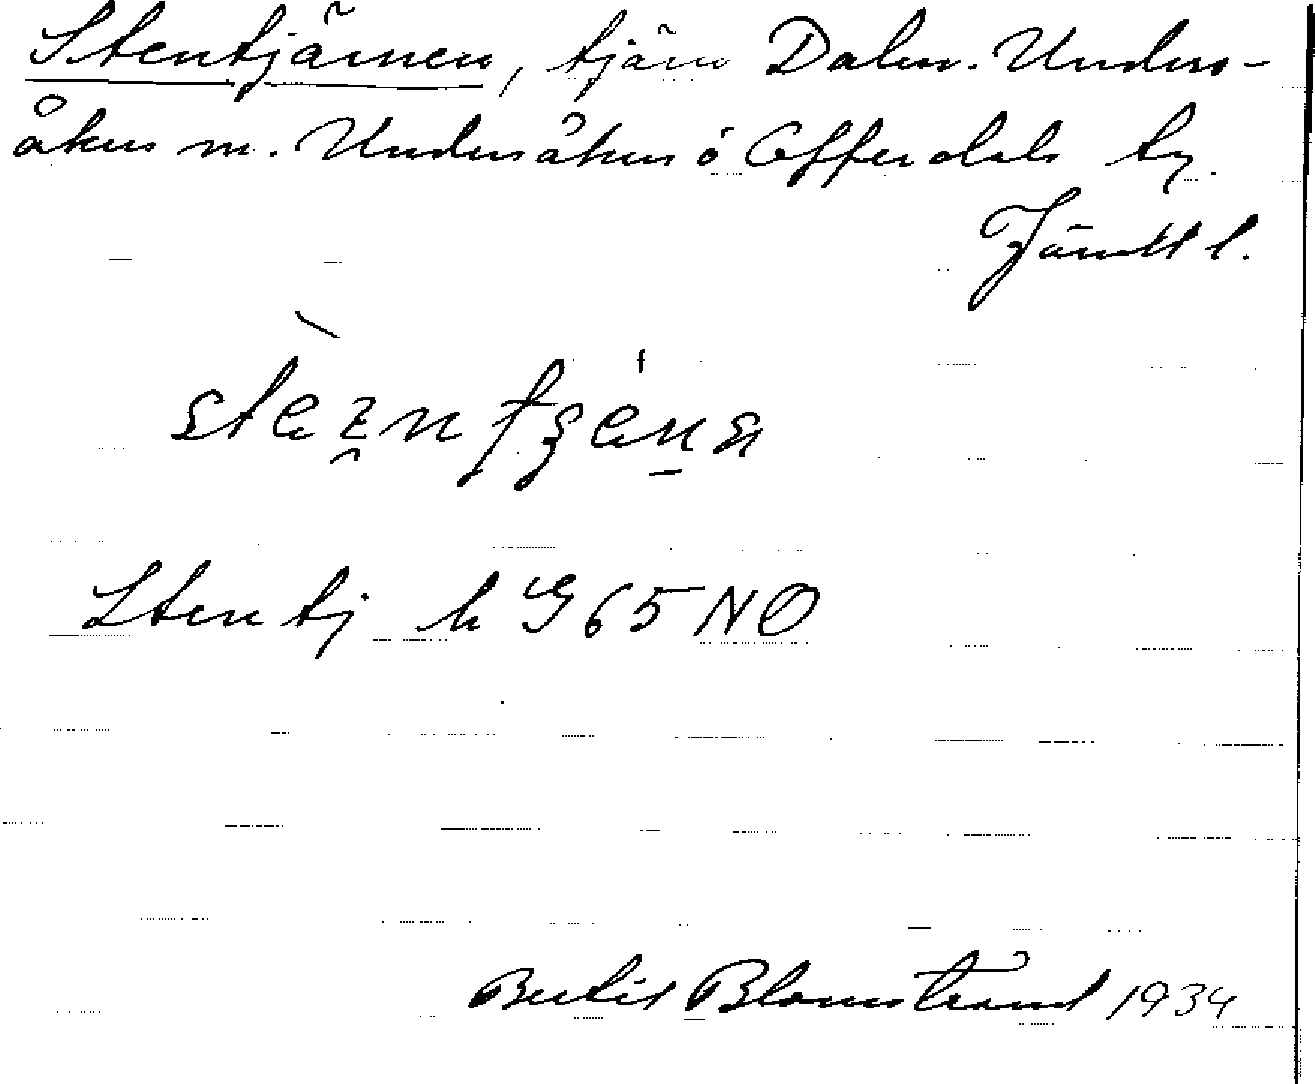 Stentjärnen, tjärn Dalen. Unders-
åkers m. Undersåkers o Offerdals tg.
Jämtl.
Stentj k G 65 NO
Bertil Blomstrand 1934